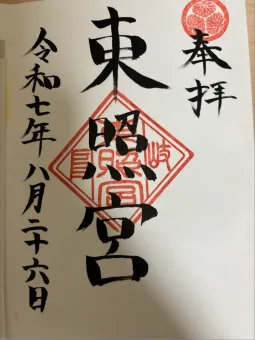 奉拝
東照宮
令和七年八月二十六日